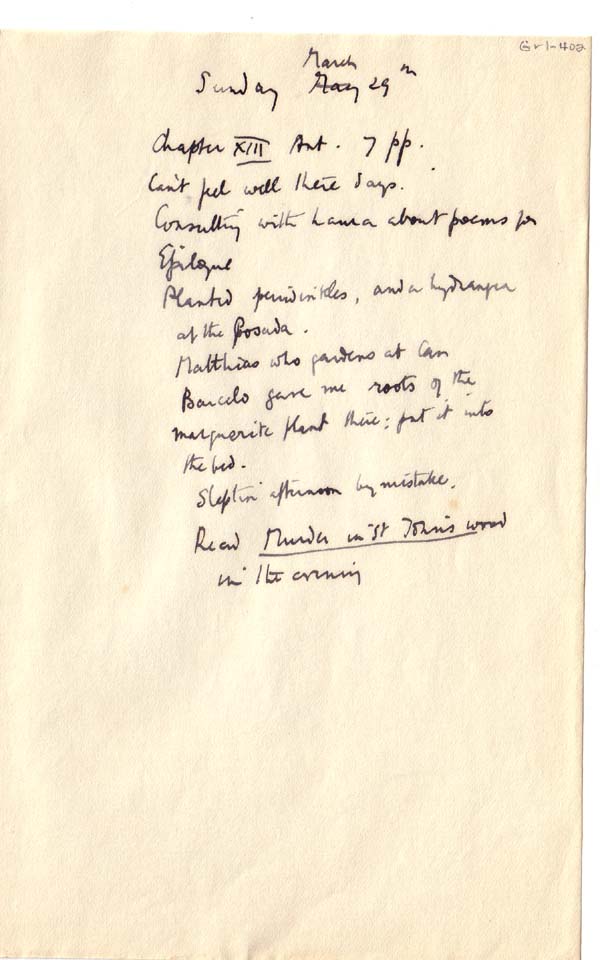 Gr1-402
March
Sunday May 29th
Chapter XIII Ant. 7 pp.
Can't feel well these days.
Consulting with Laura about poems for
Epilogue
Planted periwinkles, and a hydrangea
at the Posada.
Matthias who gardens at Can
Barcelo gave me roots of the
marguerite plant there; put it into
the bed.
Slept in afternoon by mistake.
Read Murder in St John's wood
in the evening